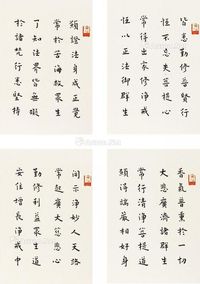 皆悉勤修普賢行
恒不忘失菩提心
常得出家修淨戒
恒以正法御群生
證法身成正覺
常於苦海救眾生
了知法界皆無礙
於諸梵行悉堅持
香氣普熏於一切
大悲廣濟諸群生
常行清淨菩提道
得端嚴相好身
開示淨妙人天路
常起廣大慈悲心
勤修利益眾生道
安住增長淨戒中